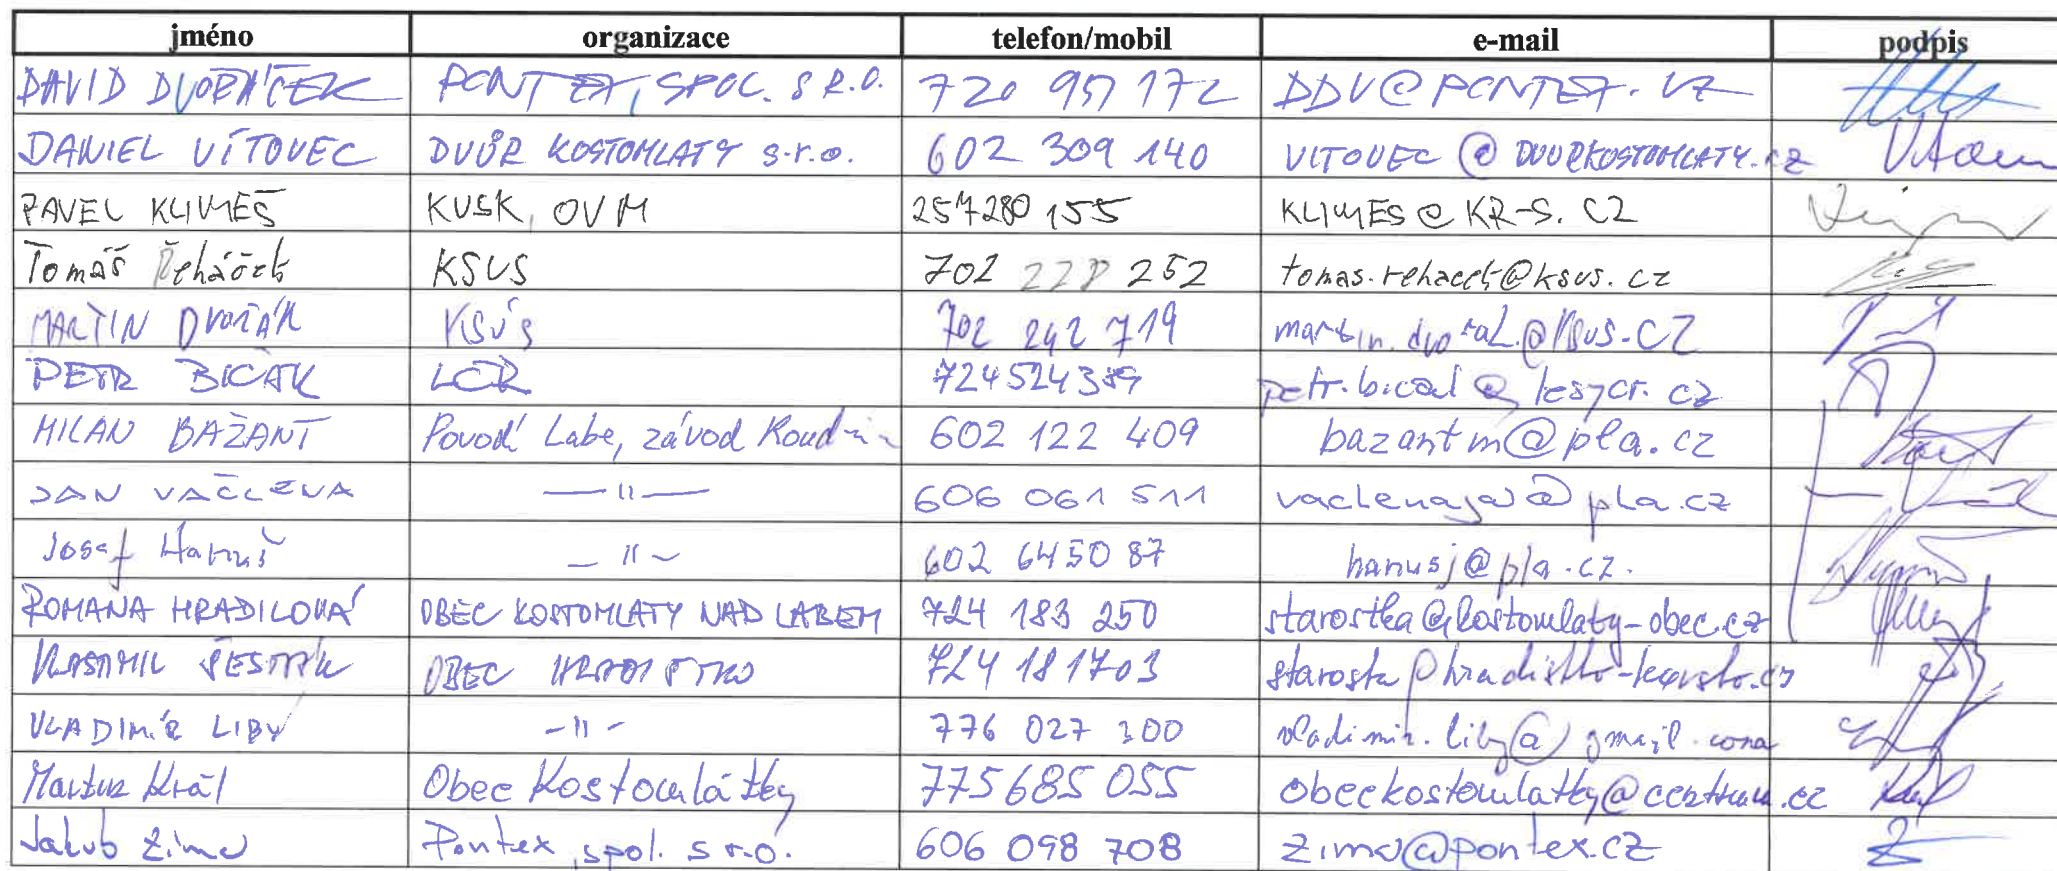 jméno organizace telefon/mobil e-mail podpis
DAVID DVOŘÁČEK PONTEX, SPOL. S R.O. 720 957 172 DDV@PONTEX.CZ
DANIEL VÍTOVEC DVŮR KOSTOMLATY s.r.o. 602 309 140 VITOVEC@DVURKOSTOMLATY.cz
PAVEL KLIMEŠ KUSK, OVM 257 280 155 KLIMES@KR-S.CZ
Tomáš Řeháček KSUS 702 228 252 tomas.rehacek@ksus.cz
MARTIN DVOŘÁK KSÚS 702 242 719 martin.dvorak@ksus.CZ
PETR BICAK LČR 724524389 petr.bicak@lesycr.cz
MILAN BAŽANT Povodí Labe, závod 602 122 409 bazantm@pla.cz
JAN VAČLENA —"— 606 061 511 vaclenaja@pla.cz
Josef Hanuš —"— 602 6450 87 hanusj@pla.cz.
ROMANA HRADILOVÁ OBEC KOSTOMLATY NAD LABEM 724 183 250 starostka@kostomlaty-obec.cz
VLASTIMIL ŠESTÁK OBEC HRADIŠTKO 724 181703 starosta@hradistko-kersko.cz
VLADIMÍR LIBÝ —"— 776 027 300 vladimir.liby@gmail.com
Král Obec Kostomlátky 775685 055 obeckostomlatky@centrum.cz
Jakub Zima Pontex, spol. s r.o. 606 098 708 zima@pontex.cz